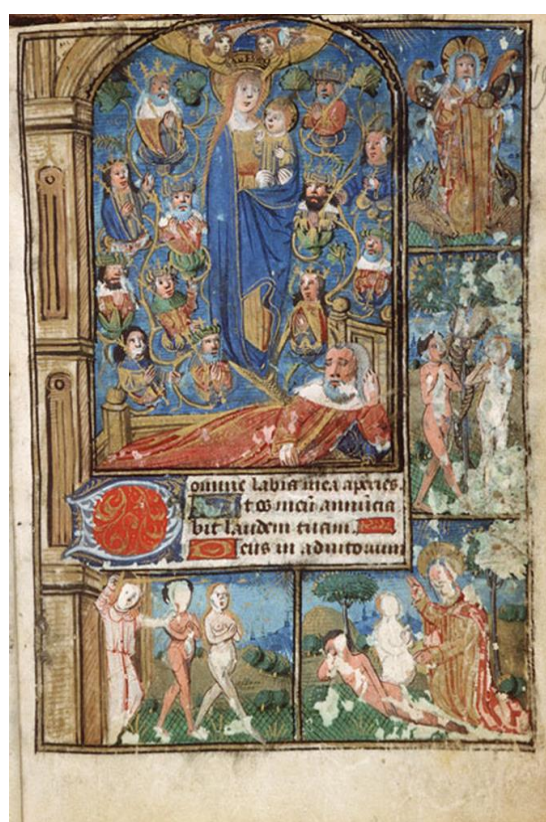 Domine labia mea aperies.
Et os meū annūcia
bit laudem tuam.
Deus in adiutorium